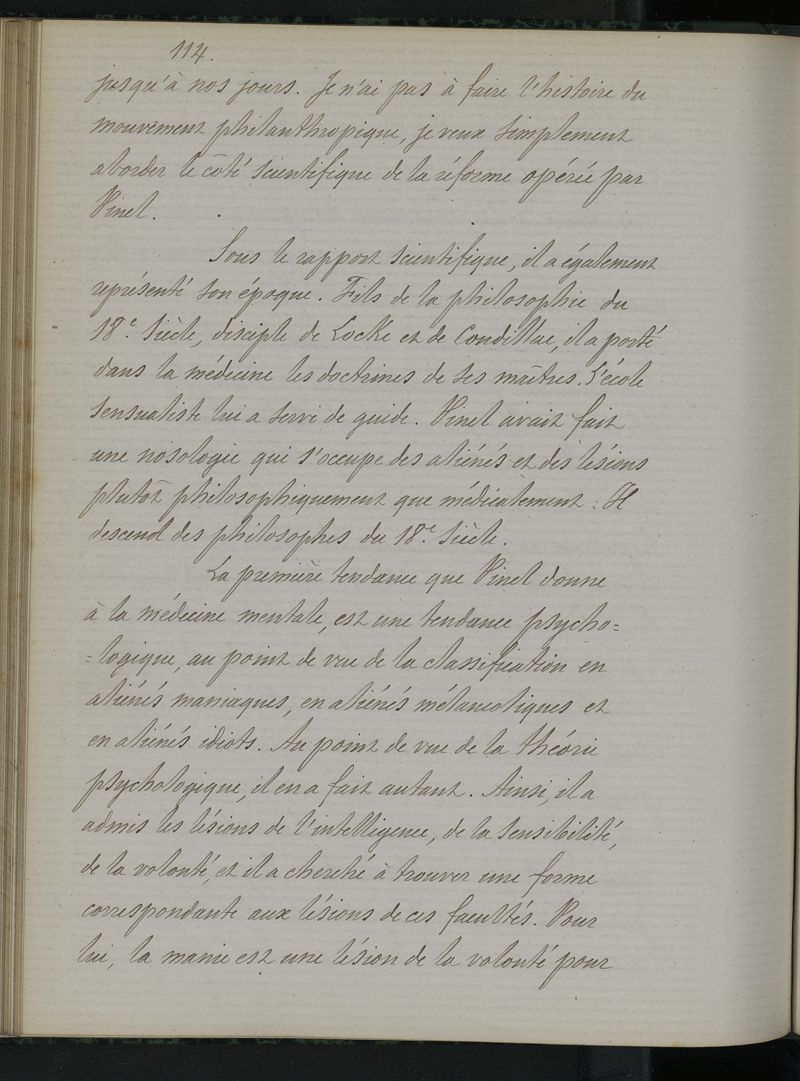 114.
jusqu'à nos jours. Je n'ai pas à faire l'histoire du
mouvement philanthropique, je veux simplement
aborder le côté scientifique de la réforme opérée par
Pinel.
Sous le rapport scientifique, il a également
représenté son époque. Fils de la philosophie du
18e. siècle, disciple de Locke et de Condillac, il a porté
dans la médecine les doctrines de ses maîtres. L'école
sensualiste lui a servi de guide. Pinel avait fait
une nosologie qui s'occupe des aliénés et des lésions
plutôt philosophiquement que médicalement : Il
descend des philosophes du 18e. siècle.
La première tendance que Pinel donne
à la médecine mentale, est une tendance psycho=
=logique, au point de vue de la classification en
aliénés maniaques, en aliénés mélancoliques et
en aliénés idiots. Au point de vue de la théorie
psychologique, il en a fait autant. Ainsi, il a
admis les lésions de l'intelligence, de la sensibilité,
de la volonté, et il a cherché à trouver une forme
correspondante aux lésions de ces facultés. Pour
lui, la manie est une lésion de la volonté pour